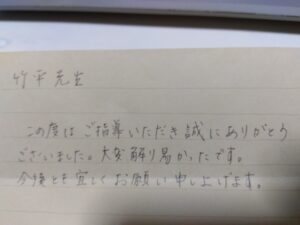 竹平先生
この度はご指導いただき誠にありがとう
ございました。大変解り易かったです。
今後とも宜しくお願い申し上げます。